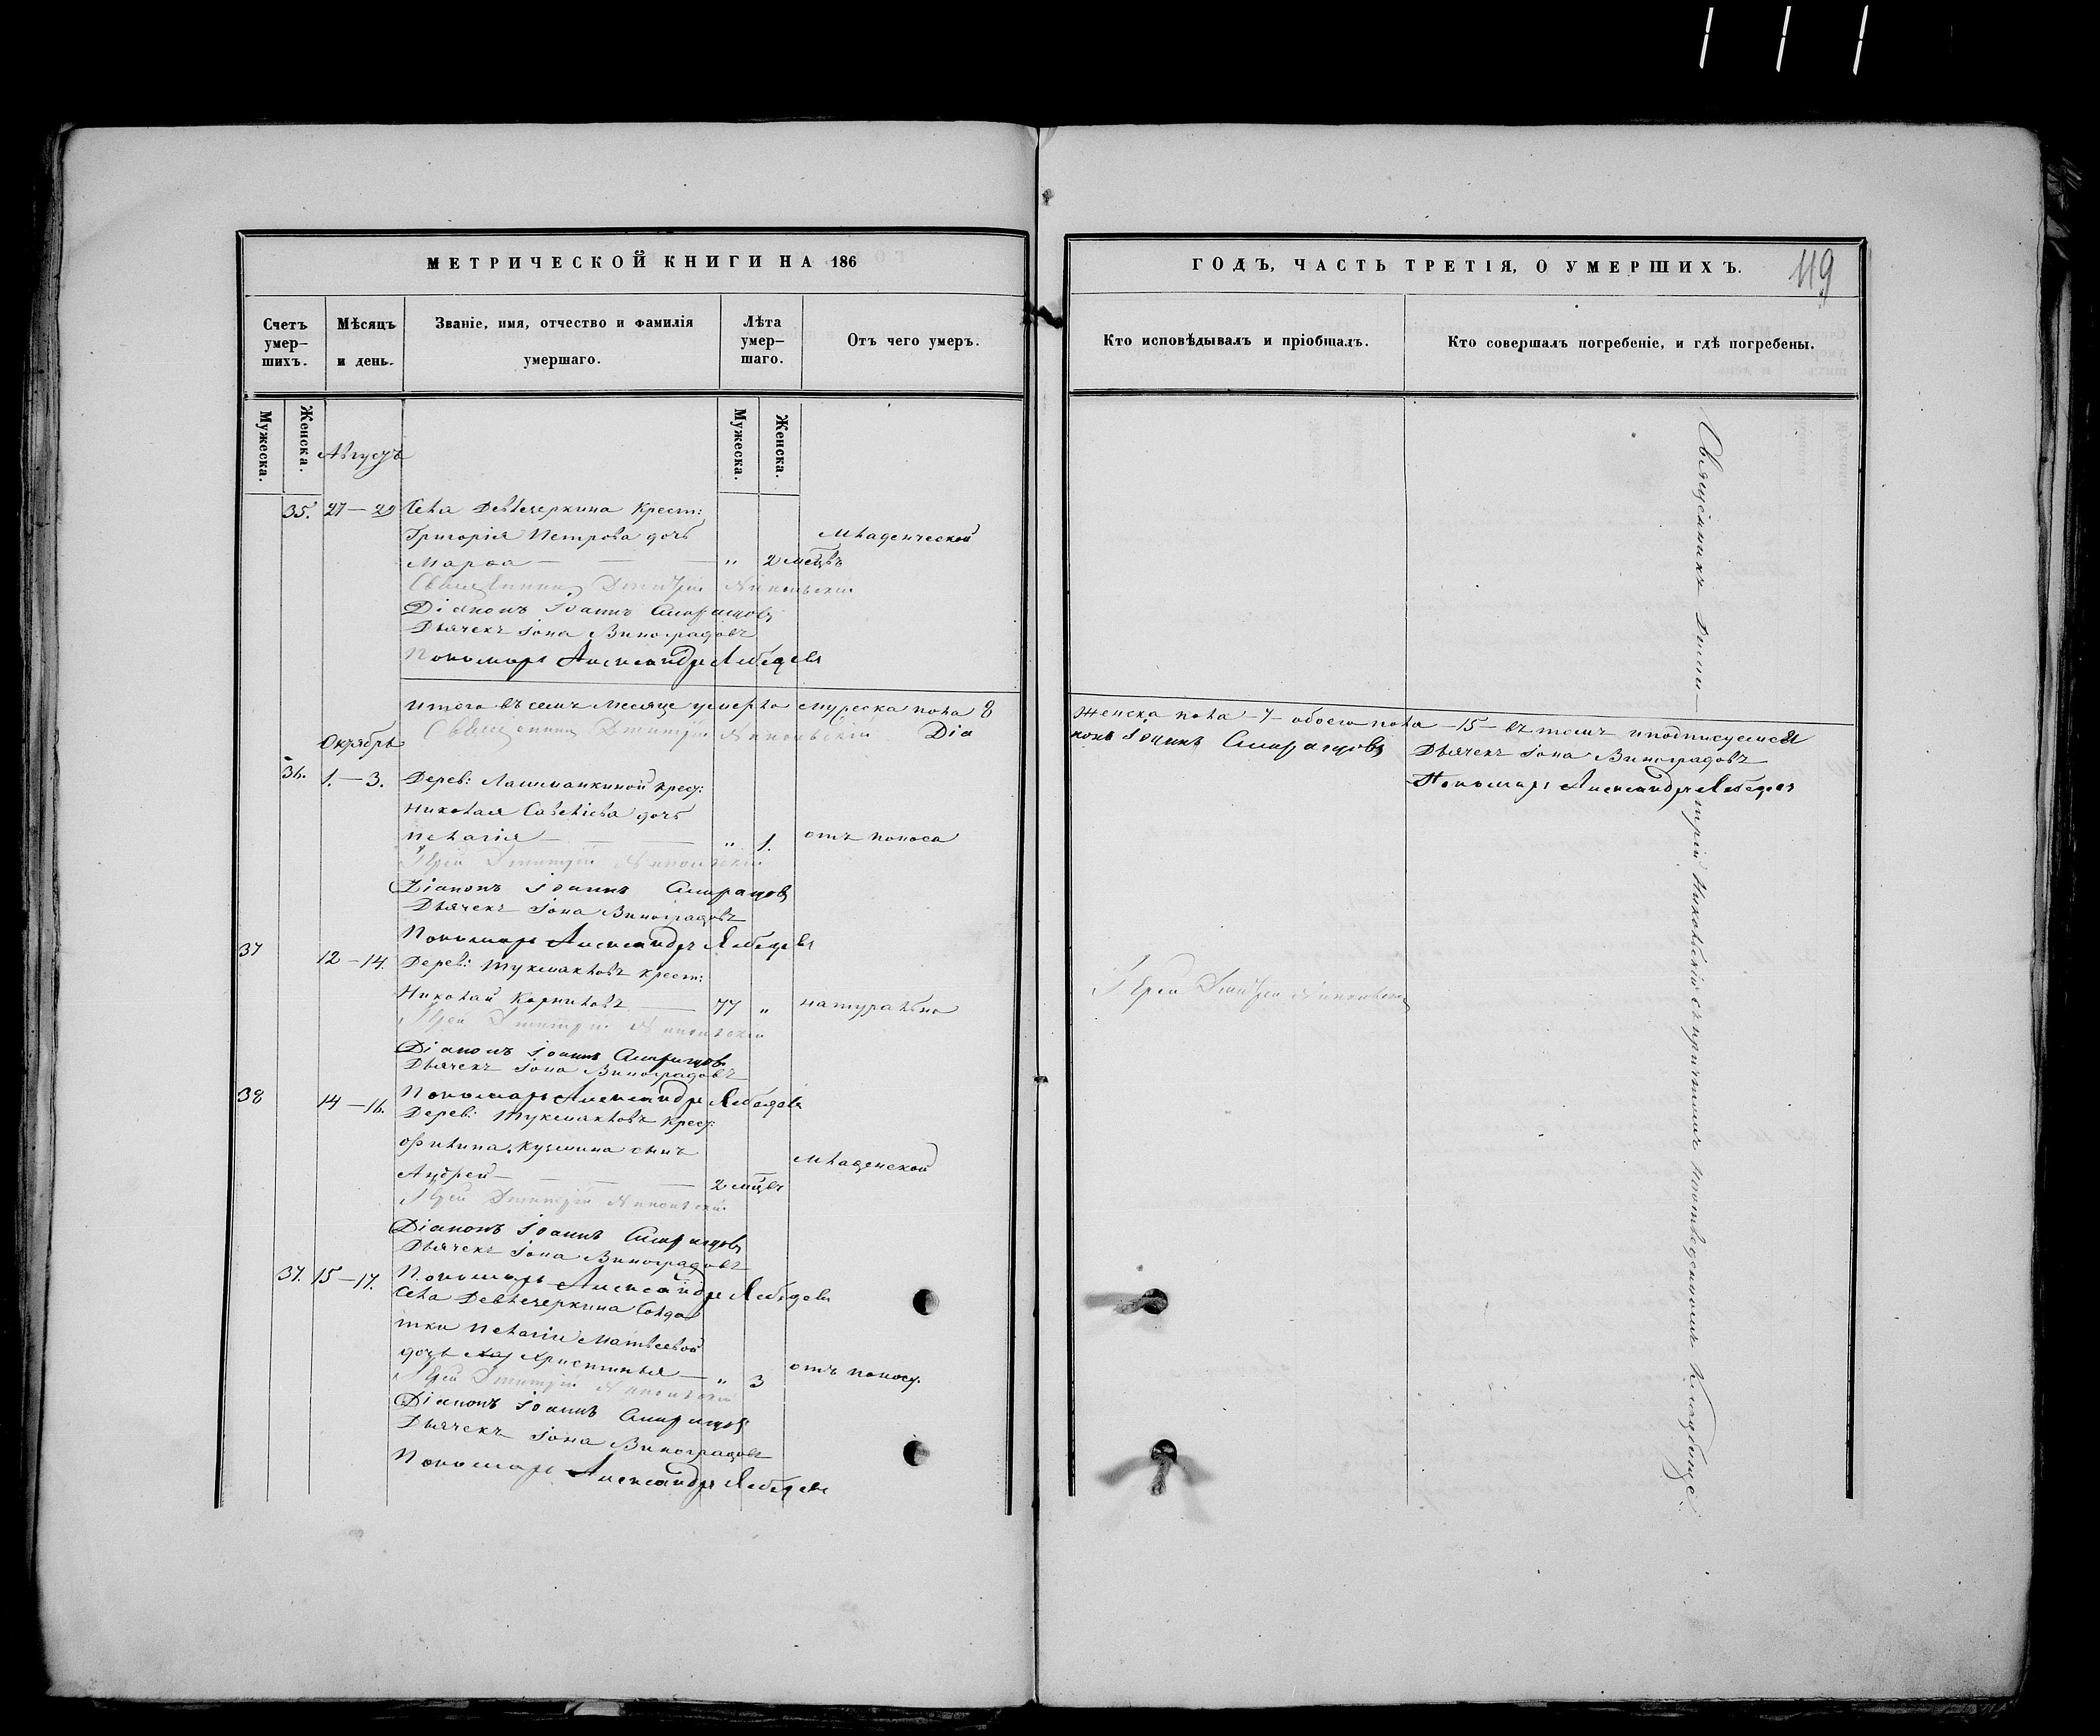 МЕТРИЧЕСКОЙ КНИГИ НА 186
Счетъ умер-шихъ.
Мѣсяцъ и день.
Званіе, имя, отчество и фамилія умершаго.
Лѣта умер-шаго.
Отъ чего умеръ.
Мужеска.
Женска.
Мужеска.
Женска.
Августъ
35. 27 — 29 Села Девлечеркина Крест:
Григорія Петрова дочь Младенческой
Марѳа — — — " 2 мѣцвъ
Священникъ Дмитрій Никольскій
Діаконъ Іоаннъ Смарагдовъ
Дьячекъ Іона Виноградовъ
Пономарь Александръ Лебедевъ
Итого въ семъ месяце умерло мужеска пола 8
Священникъ Дмитрій Никольскій Діа
Октябрь
36. 1. — 3. Дерев: Лашманкиной крест:
Николая Савельева дочь
Пелагія — — — " 1. отъ поноса
Іерей Дмитрій Никольскій
Діаконъ Іоаннъ Смарагдовъ
Дьячекъ Іона Виноградовъ
Пономарь Александръ Лебедевъ
37 12 — 14. Дерев: Тукмакловъ крест:
Николай Корниловъ — 77 " натурально
Іерей Дмитрій Никольскій
Діаконъ Іоаннъ Смарагдовъ
Дьячекъ Іона Виноградовъ
Пономарь Александръ Лебедевъ
38 14 — 16. Дерев: Тукмакловъ крест:
Филипа Кузмина сынъ Младенской
Андрей — — — — 2 мѣцвъ
Іерей Дмитрій Никольскій
Діаконъ Іоаннъ Смарагдовъ
Дьячекъ Іона Виноградовъ
Пономарь Александръ Лебедевъ
37. 15 — 17. Села Девлечеркина Солдат
тки Пелагіи Матвеевой
дочь Христинья — " 3 отъ поносу.
Іерей Дмитрій Никольскій
Діаконъ Іоаннъ Смарагдовъ
Дьячекъ Іона Виноградовъ
Пономарь Александръ Лебедевъ
ГОДЪ, ЧАСТЬ ТРЕТІЯ, О УМЕРШИХЪ.
119
Кто исповѣдывалъ и пріобщалъ.
Кто совершалъ погребеніе, и гдѣ погребены.
Женска пола — 7 — обоего пола — 15 — въ томъ и подписуемся
конъ Іоаннъ Смарагдовъ Дьячекъ Іона Виноградовъ
Пономарь Александръ Лебедевъ
Іерей Дмитрій Никольскій
Священникъ Дмитрій Никольскій съ причтомъ на отведенномъ кладбище.